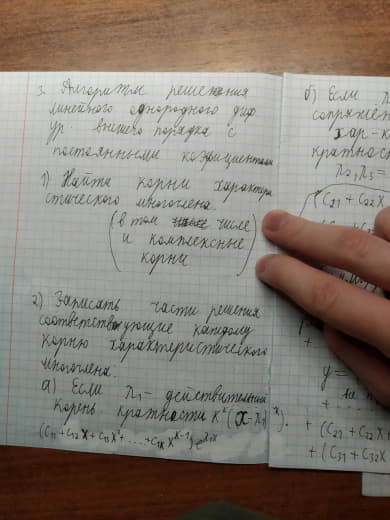 3. Алгоритм решения
линейного однородного диф
ур. высшего порядка с
постоянными коэфициентами
1) Найти корни характери
стического многочлена.
(в том числе
и комплексные
корни)
2) Записать части решения
соответствующие каждому
корню характеристического
многочлена.
а) Если λ₁ - действительный
корень кратности K
(C₁₁+C₁₂X+C₁₃X²+.....+C₁ₖX^(K-1))e^(λ₁x)
б) Если
сопряжён
хар-к
кратност
λ₂,λ₃ =
(C₂₁ + C₂₂X
y =
+ (C₂₁ + C₂₂X +
+ (C₃₁ + C₃₂X